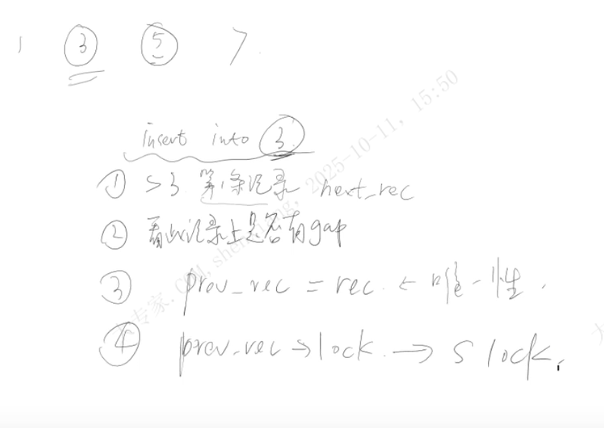 1 ③ ⑤ 7
insert into ③
① >3 第1条记录 next_rec
② 看此记录上是否有gap
③ prev_rec = rec. ← 唯一性.
④ prev_rec → lock. → S lock.
专家, 2025-10-11, 15:50